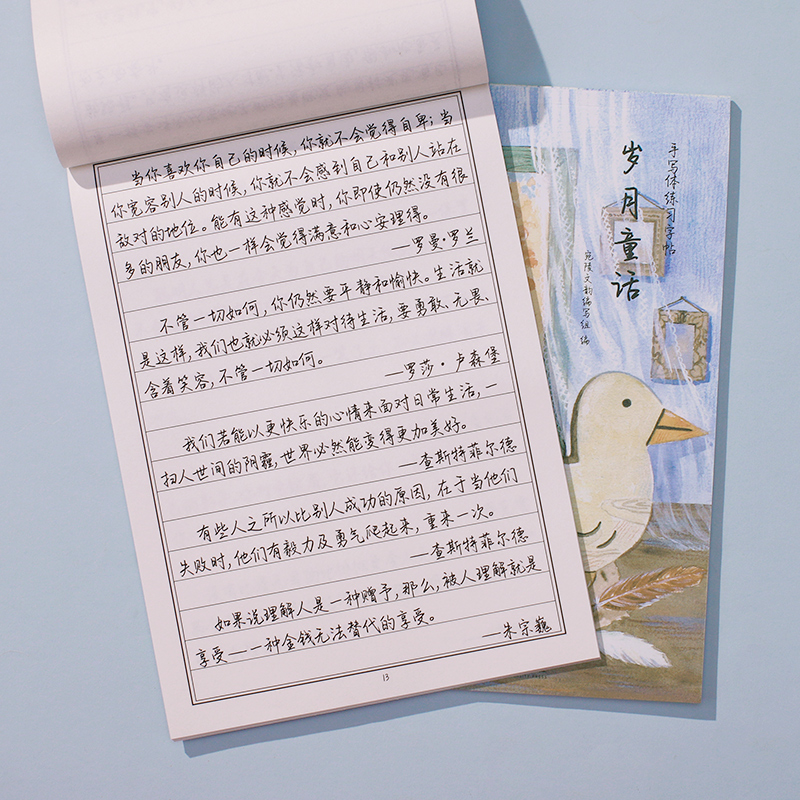 当你喜欢你自己的时候，你就不会觉得自卑；当
你宽容别人的时候，你就不会感到自己和别人站在
敌对的地位。能有这种感觉时，你即使仍然没有很
多的朋友，你也一样会觉得满意和心安理得。
—罗曼·罗兰
不管一切如何，你仍然要平静和愉快。生活就
是这样，我们也就必须这样对待生活，要勇敢、无畏、
含着笑容，不管一切如何。
—罗莎·卢森堡
我们若能以更快乐的心情来面对日常生活，一
扫人世间的阴霾，世界必然能变得更加美好。
—查斯特菲尔德
有些人之所以比别人成功的原因，在于当他们
失败时，他们有毅力及勇气爬起来，重来一次。
—查斯特菲尔德
如果说理解人是一种赠予，那么，被人理解就是
享受——一种金钱无法替代的享受。
—朱宗巍
13
手写体练习字帖
岁月童话
宛陵文韵编写组 编